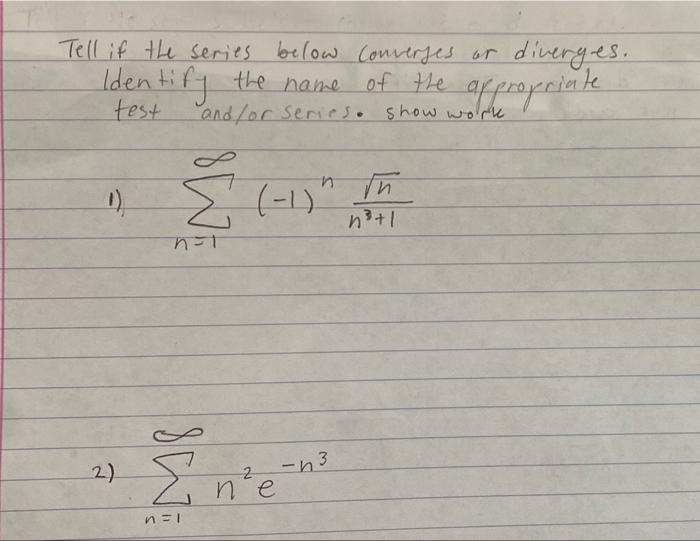 Tell if the series below converges or diverges.
Identify the name of the appropriate
test and/or series. show work
1) ∞ Σ n=1 (-1)^n √n / n³+1
2) ∞ Σ n=1 n² e^-n³